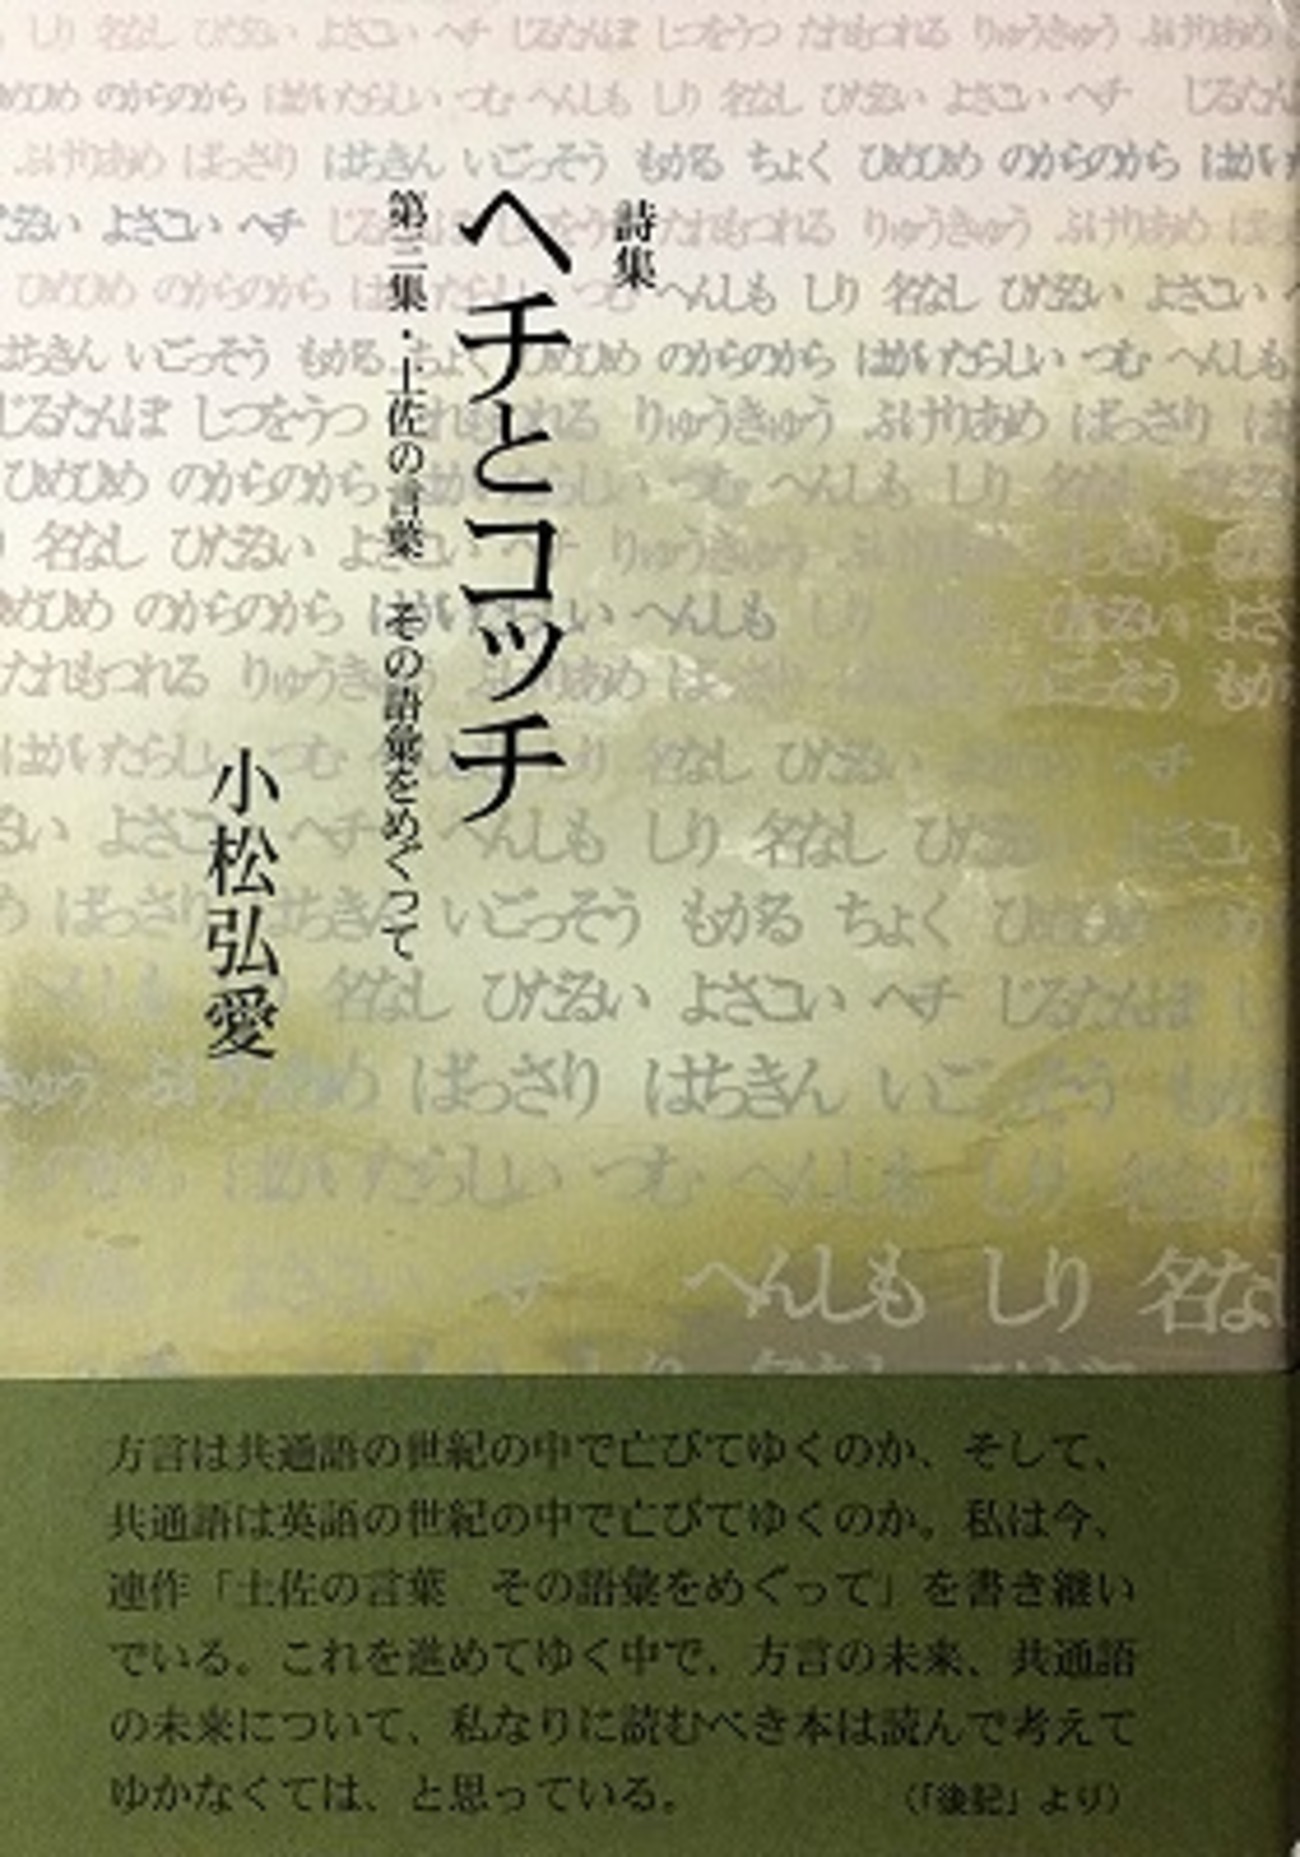 詩集
ヘチとコッチ
第三集・土佐の言葉　その語彙をめぐって
小松弘愛
しり 名なし ひだるい よさこい ヘチ じるたんぽ しつをうつ たれもつれる りゅうきゅう ぶけりあめ
ひめ のからのから はがいたらしい つむ へんしも しり 名なし ひだるい よさこい ヘチ じるたん
ぶけりあめ ばっさり はちきん いごっそう もがる ちょく ひめひめ のからのから はがい
よさこい ヘチ りゅうきゅう ぶけりあめ
ひめひめ のからのから へんしも しり 名なし ひだるい よさこい
はちきん いごっそう もがる のからのから はがいたらしい つむ へんしも
じるたんぽ しつをうつ りゅうきゅう ぶけりあめ ばっさり
ひめひめ のからのから つむ へんしも しり 名なし
名なし ひだるい りゅうきゅう
のからのから へんしも しり よさ
たれもつれる もが
はがいたらしい つむ 名なし ひだるい ヘチ
よさこい ヘチ へんしも しり 名なし ひだるい よさこい
ばっさり はちきん いごっそう もがる ちょく
名なし ひだるい よさこい ヘチ じるたんぽ
ばっさり はちきん
はがいたらしい つむ へんしも しり
へんしも しり 名なし
方言は共通語の世紀の中で亡びてゆくのか、そして、
共通語は英語の世紀の中で亡びてゆくのか。私は今、
連作「土佐の言葉　その語彙をめぐって」を書き継い
でいる。これを進めてゆく中で、方言の未来、共通語
の未来について、私なりに読むべき本は読んで考えて
ゆかなくては、と思っている。　（「後記」より）